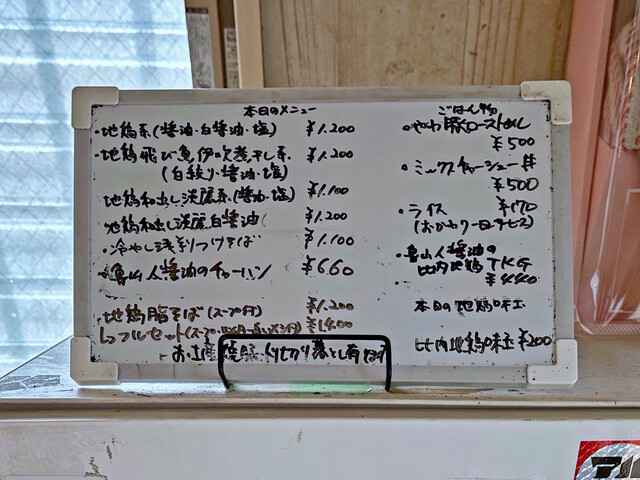 本日のメニュー
・地鶏系(醤油・白醤油・塩) ¥1.200
・地鶏飛び魚伊吹煮干し系 ¥1.200
(白絞り・醤油・塩)
地鶏和出し淡麗系(醤油・塩) ¥1.100
地鶏和出し淡麗白醤油( ¥1.200
・冷やし浅利つけそば ¥1.100
・魯山人醤油のチャーハン ¥660
地鶏脂そば(スープ付) ¥1.200
しっフルセット(スープ ¥1400
お土産焼豚切り落とし有ます
ごはん物
・やわ豚ローストめし
¥500
・ミックスチャーシュー丼
¥500
・ライス ¥170
(おかわり一回サービス)
・魯山人醤油の
比内地鶏TKG
¥440
本日の地鶏味玉
比内地鶏味玉¥200